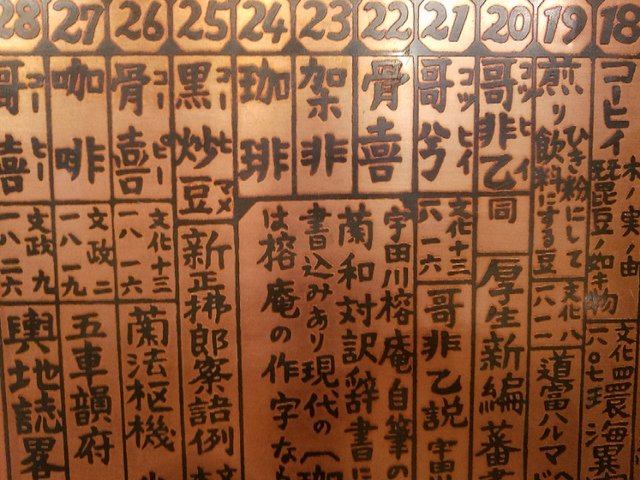 18
コーヒイ
木ノ実ノ由
琵琶豆ノ如キ物
文化四
一八〇七
環海異
19
煎リ飲料にする豆
ひき粉にして
文化八
一八一一
道富ハルマ
20
哥非乙
コッヒイ
同
厚生新編蕃書
21
哥兮
コッヒイ
文化十三
一八一六
哥非乙説
宇田川
22
骨喜
23
架非
24
珈琲
宇田川榕庵自筆の
蘭和対訳辞書に
書込みあり現代の
は榕庵の作字なら
25
黒炒豆
コーヒマメ
新正拂郎察語例
26
骨喜
コーヒー
文化十三
一八一六
蘭法枢機
27
咖啡
文政二
一八一九
五車韻府
28
哥喜
コーヒー
文政九
一八二六
輿地誌畧